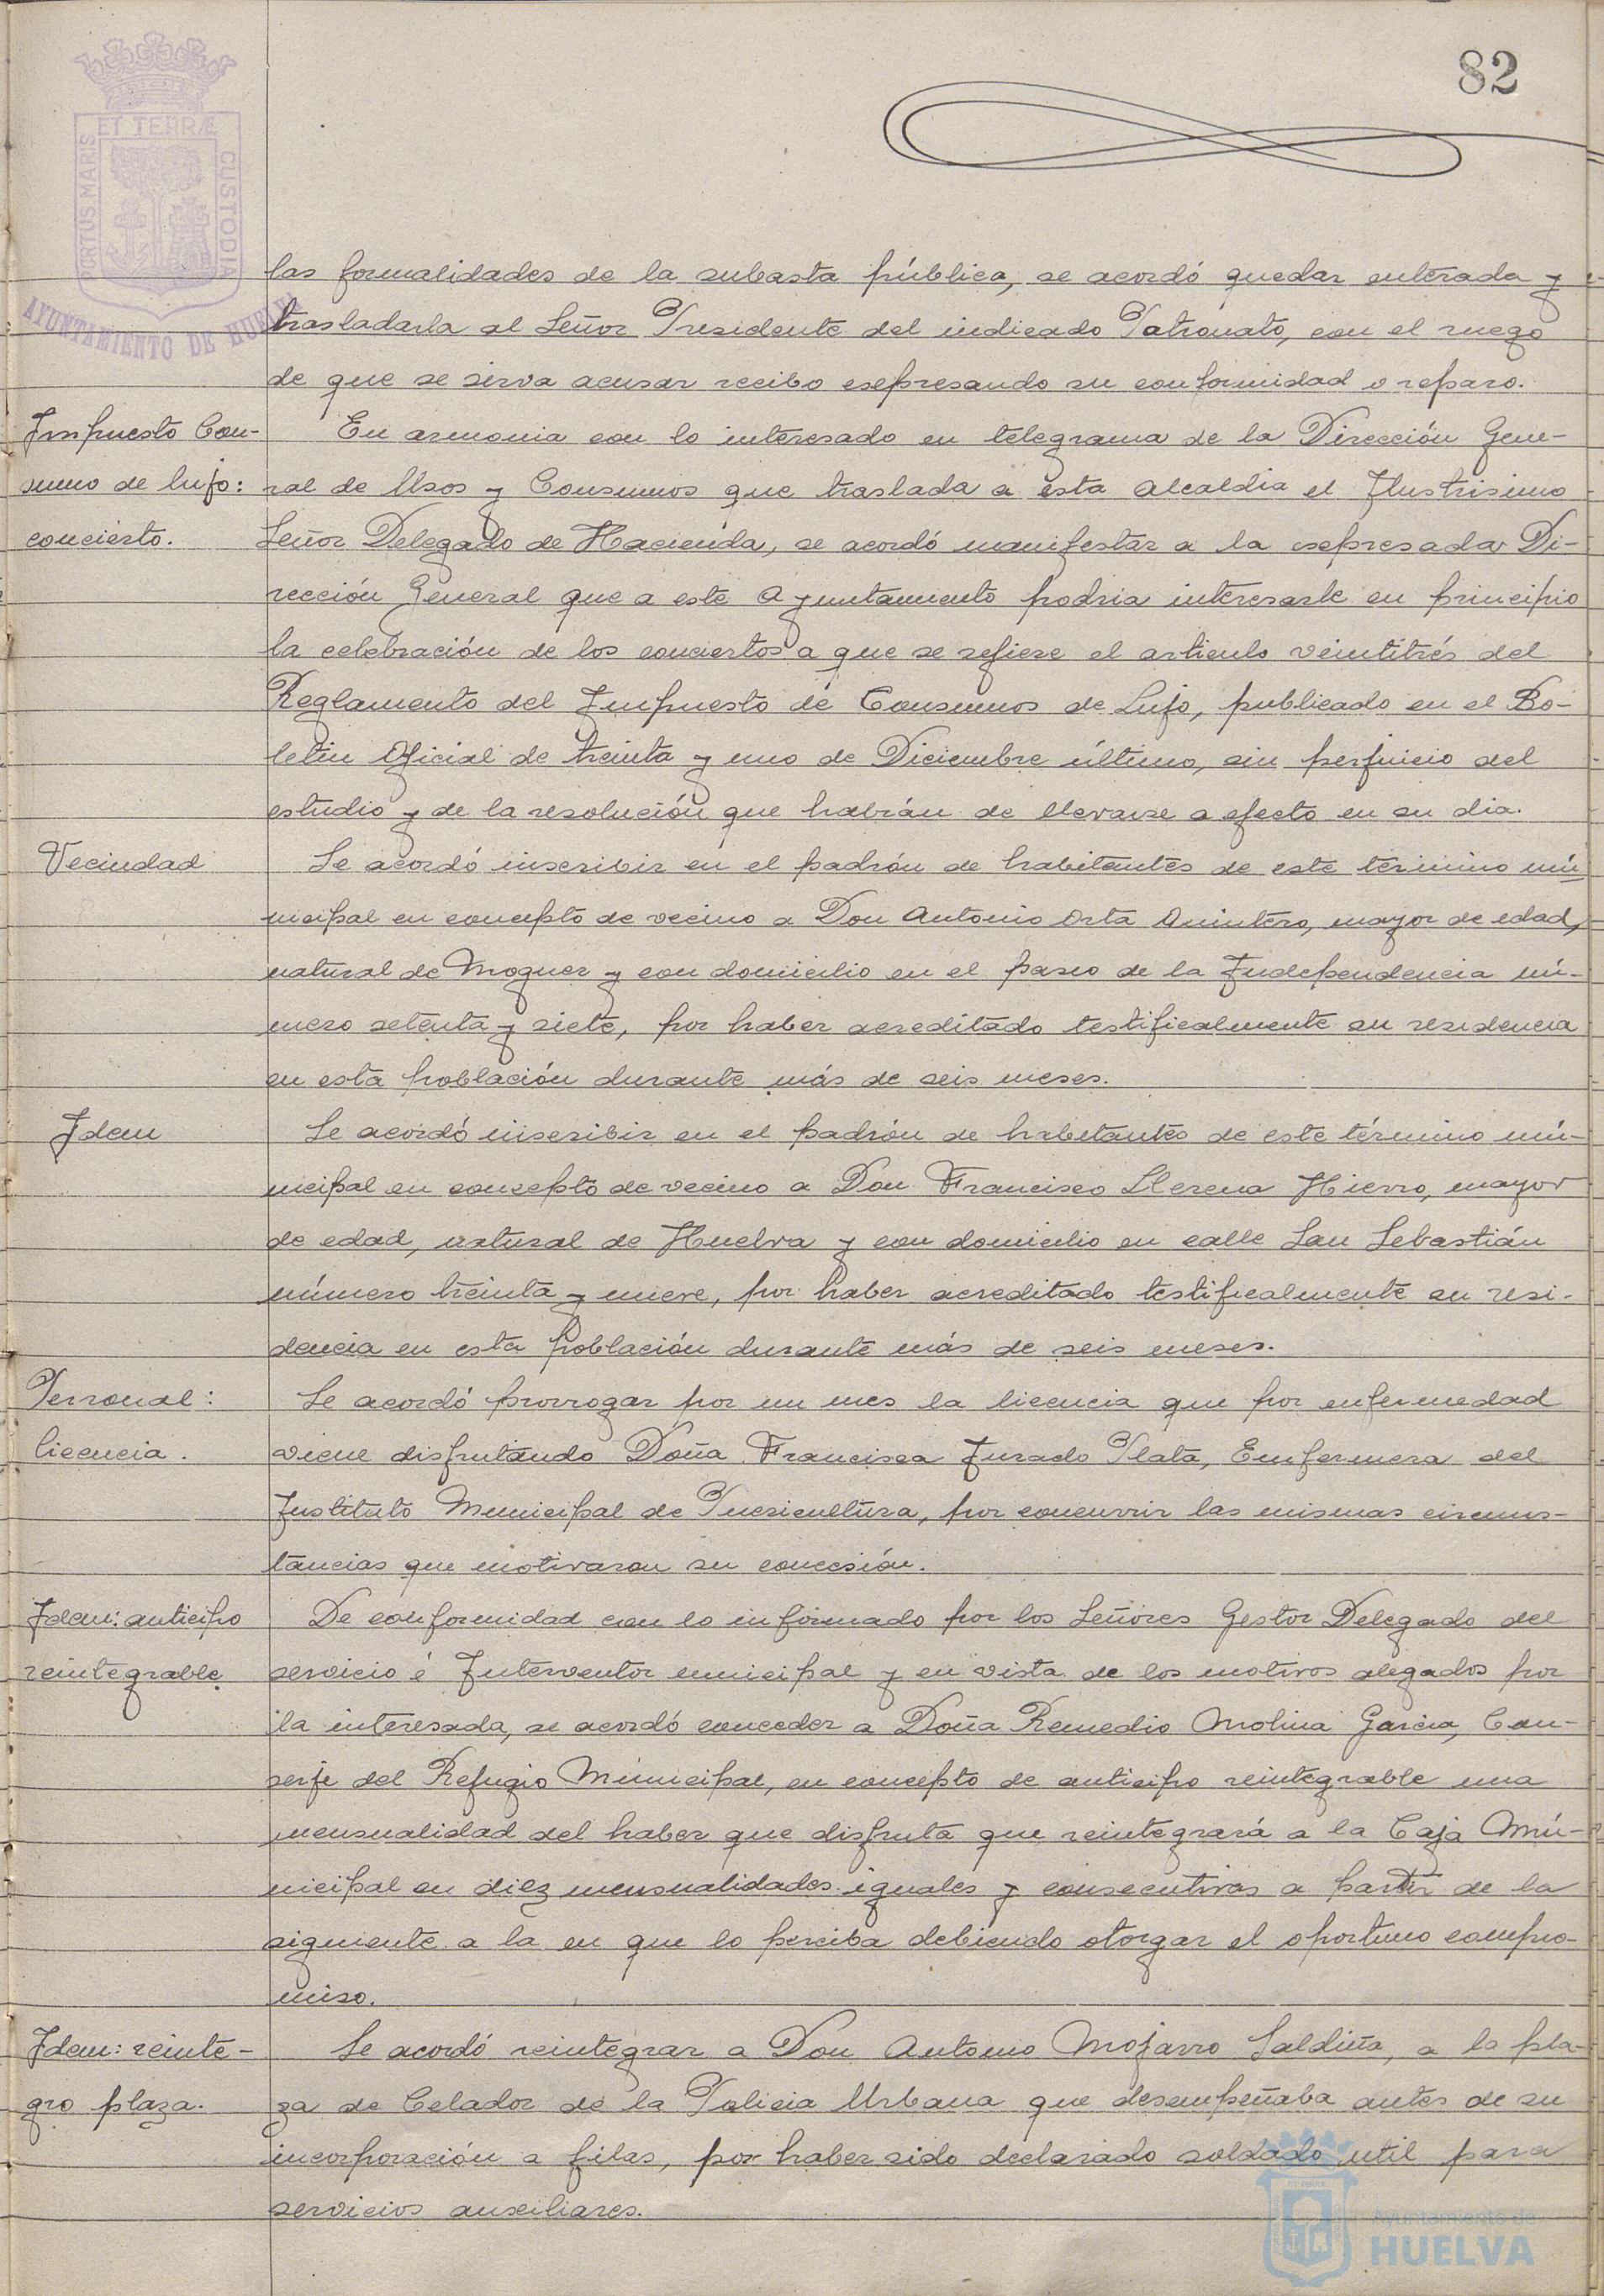 82
ET TERRÆ
PORTUS MARIS
CUSTODIA
AYUNTAMIENTO DE HUELVA
las formalidades de la subasta pública, se acordó quedar enterada y
trasladarla al Señor Presidente del indicado Patronato, con el ruego
de que se sirva acusar recibo esepresando su conformidad o reparo.
Impuesto Con-
sumo de lujo:
concierto.
En armonia con lo interesado en telegrama de la Dirección Gene-
ral de Usos y Consumos que traslada a esta Alcaldia el Ilustrisimo
Señor Delegado de Hacienda, se acordó manifestar a la esepresada Di-
rección General que a este Ayuntamiento podria interesarle en principio
la celebración de los conciertos a que se refiere el articulo veintitrés del
Reglamento del Impuesto de Consumos de Lujo, publicado en el Bo-
letin Oficial de treinta y uno de Diciembre último, sin perjuicio del
estudio y de la resolución que habrán de llevarse a efecto en su dia.
Vecindad
Se acordó inscribir en el padrón de habitantes de este término mu-
nicipal en concepto de vecino a Don Antonio Orta Quintero, mayor de edad,
natural de Moguer y con domicilio en el paseo de la Independencia nú-
mero setenta y siete, por haber acreditado testificalmente su residencia
en esta población durante más de seis meses.
Idem
Se acordó inscribir en el padrón de habitantes de este término mu-
nicipal en concepto de vecino a Don Francisco Llerena Hierro, mayor
de edad, natural de Huelva y con domicilio en calle San Sebastián
número treinta y nueve, por haber acreditado testificalmente su resi-
dencia en esta población durante más de seis meses.
Personal:
licencia.
Se acordó prorrogar por un mes la licencia que por enfermedad
viene disfrutando Doña Francisca Jurado Plata, Enfermera del
Instituto Municipal de Puericultura, por concurrir las mismas circuns-
tancias que motivaron su concesión.
Idem: anticipo
reintegrable.
De conformidad con lo informado por los Señores Gestor Delegado del
servicio é Interventor municipal y en vista de los motivos alegados por
la interesada, se acordó conceder a Doña Remedio Molina Garcia, Con-
serje del Refugio Municipal, en concepto de anticipo reintegrable una
mensualidad del haber que disfruta que reintegrará a la Caja Mu-
nicipal en diez mensualidades iguales y consecutivas a partir de la
siguiente a la en que lo perciba debiendo otorgar el oportuno compro-
miso.
Idem: reinte-
gro plaza.
Se acordó reintegrar a Don Antonio Mojarro Saldiña, a la pla-
za de Celador de la Policia Urbana que desempeñaba antes de su
incorporación a filas, por haber sido declarado soldado util para
servicios auseiliares.
Ayuntamiento de
HUELVA